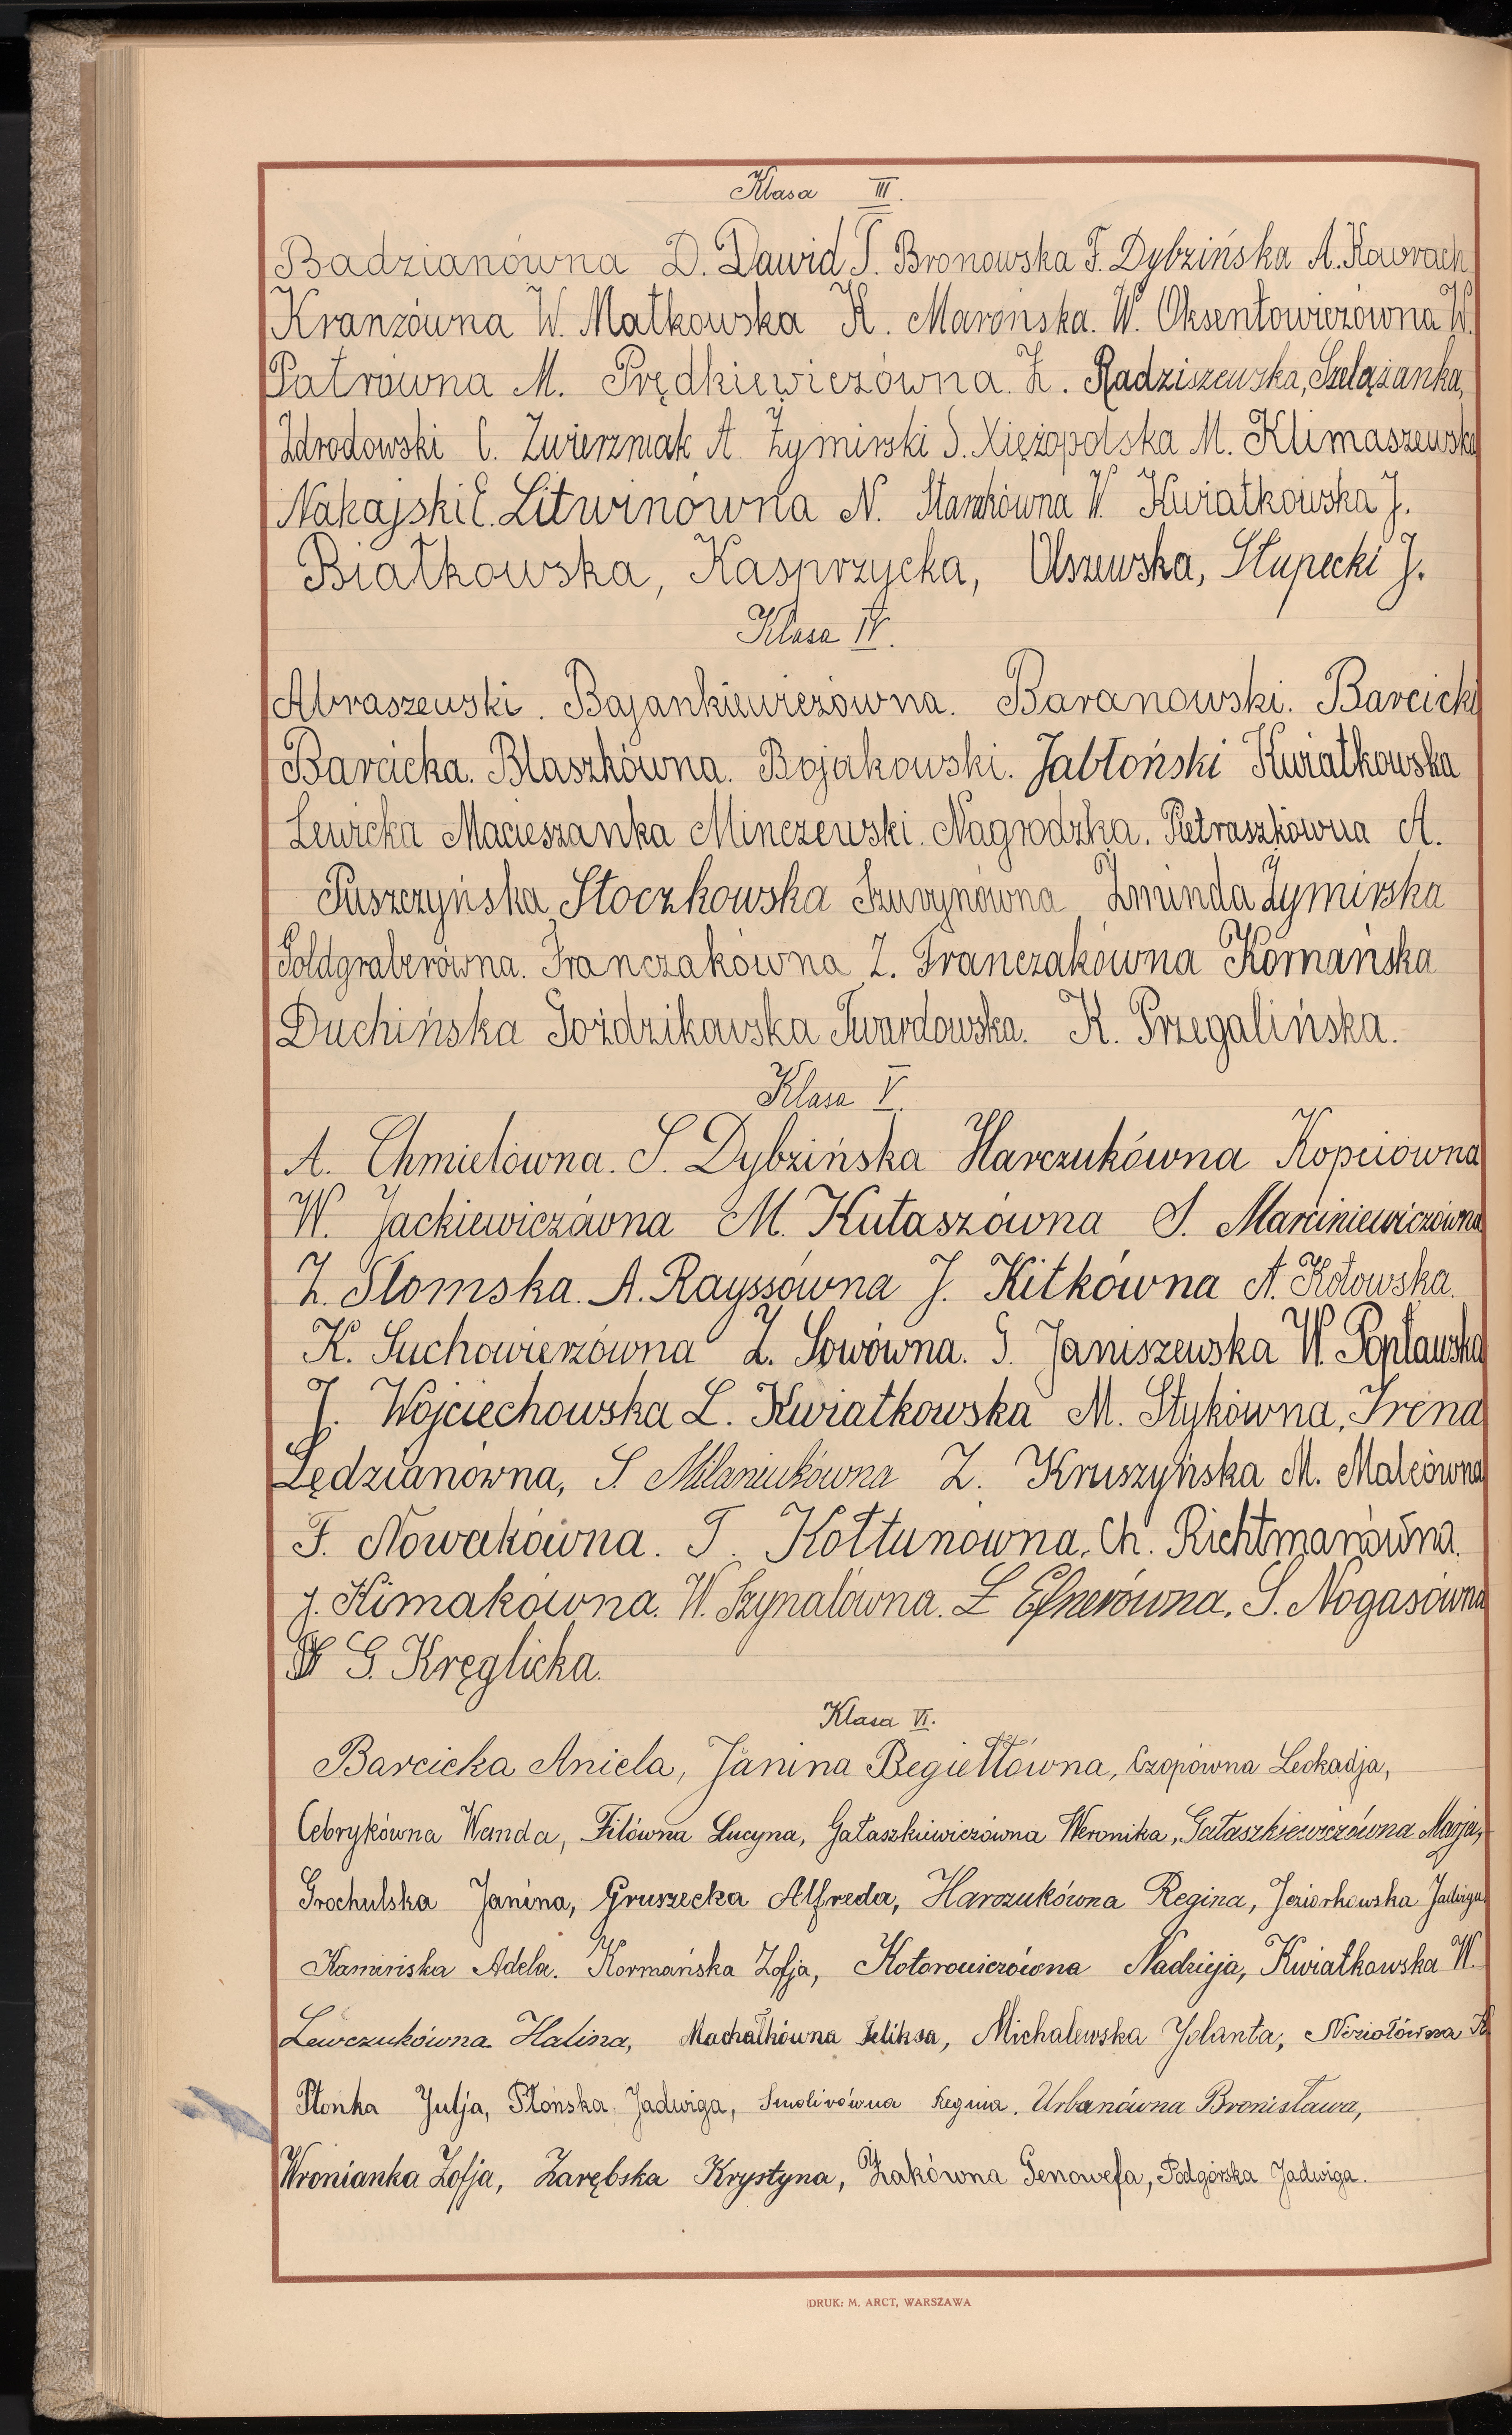 Klasa III.
Badzianówna D. Dawid T. Bronowska F. Dybzińska A. Kowrach
Kranzówna W. Małkowska K. Marońska. W. Oksentowiczówna W.
Patrówna M. Prędkiewiczówna. Z. Radziszewska, Szelążanka,
Zdrodowski C. Zwierzniak A. Żymirski S. Xiężopolska M. Klimaszewska
Nakajski E. Litwinówna N. W. Kwiatkowska J.
Białkowska, Kasprzycka, Olszewska, Słupecki J.
Klasa IV.
Abraszewski. Bajankiewiczówna. Baranowski. Barcicki
Barcicka. Blaszkówna. Bojakowski. Jabłoński Kwiatkowska
Lewicka Macieszanka Minczewski. Nagrodzka. Pietraszkówna A.
Puszczyńska Stoczkowska Żminda Żymirska
Goldgraberówna. Franczakówna Z. Franczakówna Komańska
Duchińska Goździkowska Twardowska. K. Przegalińska.
Klasa V.
A. Chmielówna. S. Dybzińska Harczukówna Kopciówna
W. Jackiewiczówna M. Kutaszówna S. Marciniewiczówna
Z. Słomska. A. Rayssówna J. Kitkówna A. Kotowska.
K. Suchowierzówna Z. Sowówna. G. Janiszewska W. Popławska
J. Wojciechowska L. Kwiatkowska M. Stykówna, Irena
Lędzianówna, S. Milaniukówna Z. Kruszyńska M. Malcówna
F. Nowakówna. T. Kołtunówna, Ch. Richtmanówna.
J. Kimakówna. W. Szynalówna. L Efnerówna. S. Nogasówna
G. Kręglicka.
Klasa VI.
Barcicka Aniela, Janina Begiełłówna, Czopówna Leokadja,
Cebrykówna Wanda, Filówna Lucyna, Gałaszkiewiczówna Weronika, Gałaszkiewiczówna Marja,
Grochulska Janina, Gruszecka Alfreda, Harczukówna Regina, Jeziorkowska Jadwiga
Kamińska Adela. Kormańska Zofja, Kotorowiczówna Nadzieja, Kwiatkowska W.
Lewczukówna Halina, Machałkówna Feliksa, Michalewska Jolanta, Niziołówna K
Płonka Julja, Płońska Jadwiga, Smolirówna Regina. Urbanówna Bronisława,
Wronianka Zofja, Zarębska Krystyna, Żakówna Genowefa, Podgórska Jadwiga.
DRUK: M. ARCT, WARSZAWA